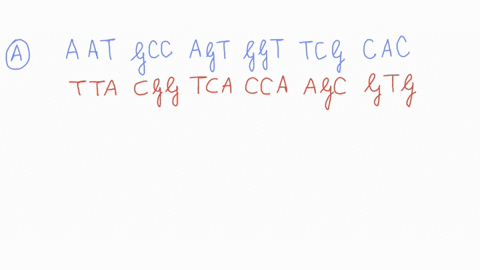 A AAT GCC AGT GGT TCG CAC
TTA CGG TCA CCA AGC GTG